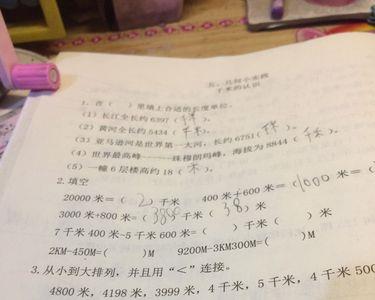 五、几何小实践
千米的认识
1. 在（ ）里填上合适的长度单位。
（1）长江全长约 6397（千米）。
（2）黄河全长约 5434（千米）。
（3）亚马逊河是世界第一大河，长约 6751（千米）。
（4）世界最高峰——珠穆朗玛峰，海拔为 8844（千米）。
（5）一幢 6 层楼高约 18（米）。
2. 填空
20000 米＝（ 2 ）千米 400 米＋600 米＝（1000 米＝（
3000 米+800 米=（3800 千米（38）米
7 千米 400 米~5 千米 600 米=（ ）千米（ ）米
2KM-450M=( )M 9200M-3KM300M=( )M
3. 从小到大排列，并且用“＜”连接。
4800 米，4198 米，3999 米，4 千米，5 千米，4 千米 500